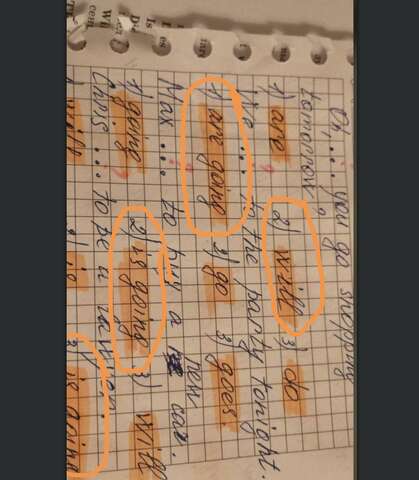 Oh, ... you go shopping
tomorrow?
1) are 2) will 3) do
... to the party tonight.
1) are going 2) go 3) goes
Max ... to buy a new car.
1) going 2) is going 3) will
Chris ... to be a lawyer.
1) will 2) is 3) is going